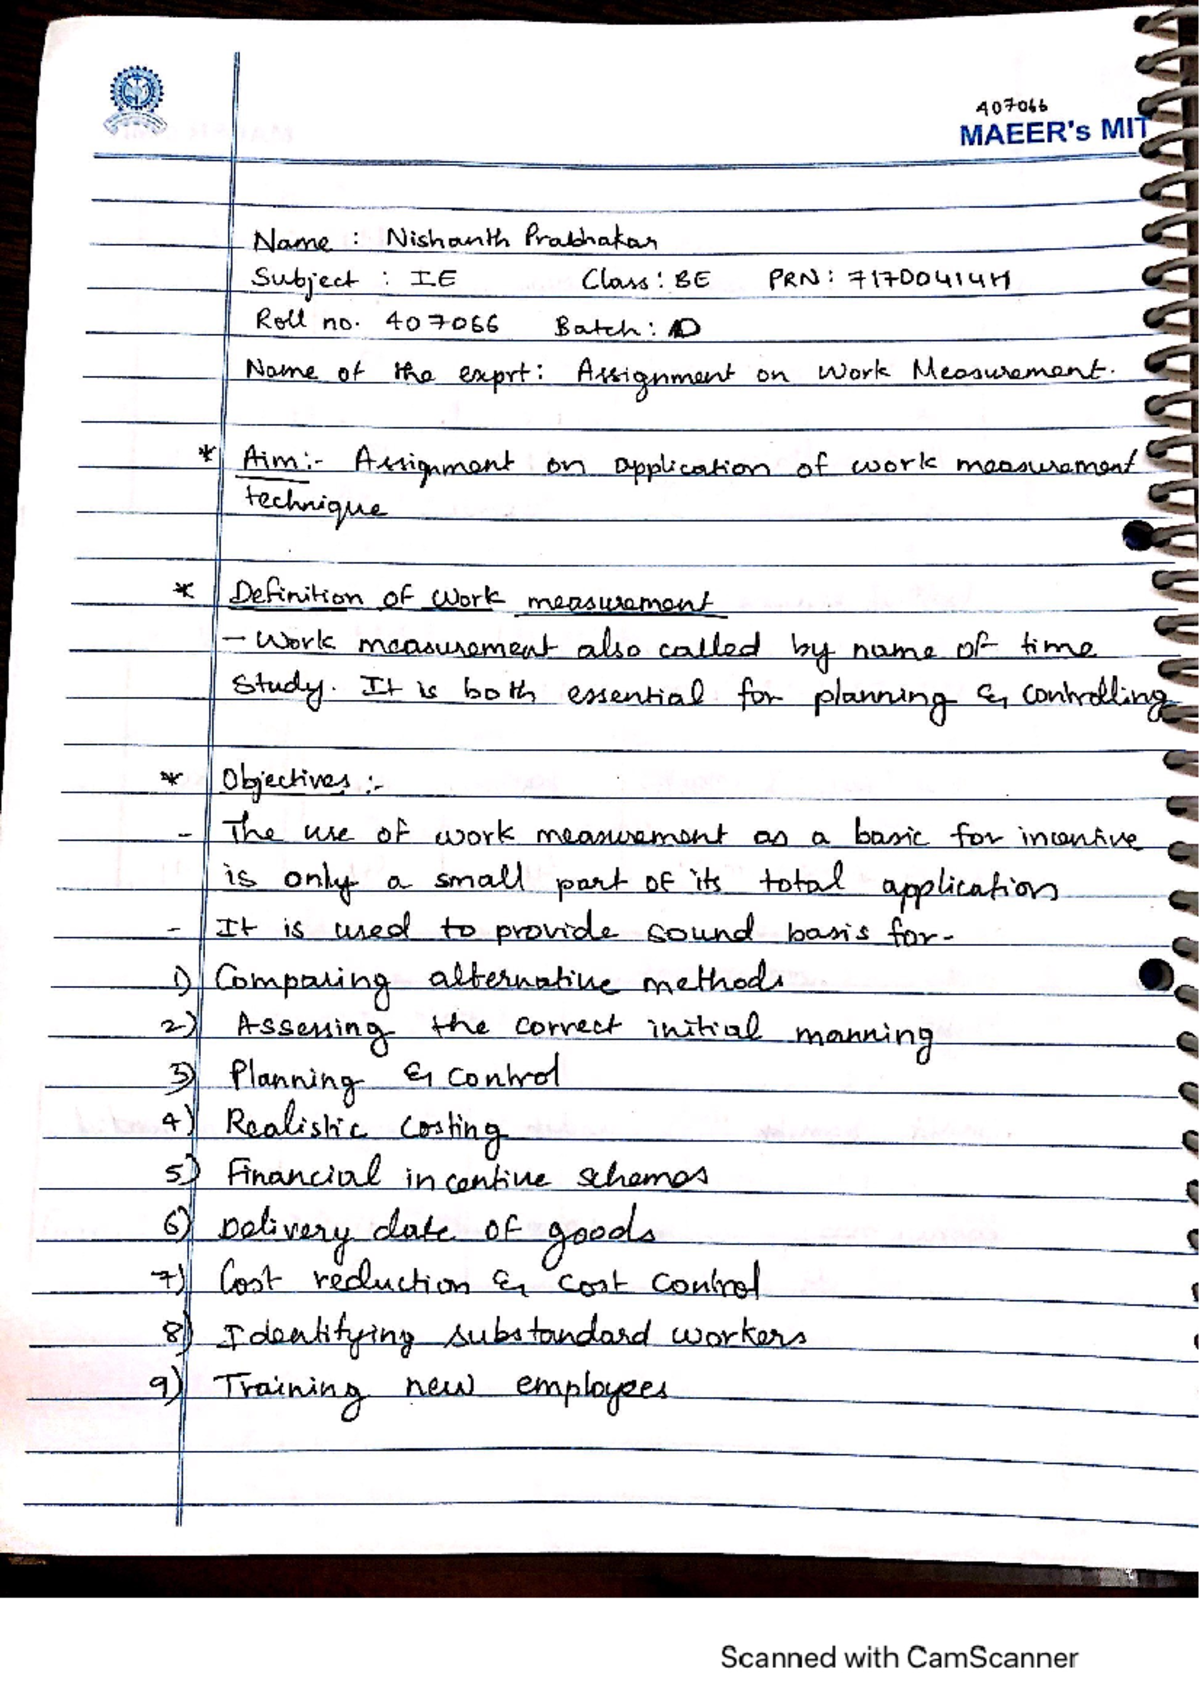 407066
MAEER's MIT
Name : Nishanth Prabhakar
Subject : IE Class : BE PRN : 71700414H
Roll no. 407066 Batch : D
Name of the exprt : Assignment on Work Measurement.
* Aim :- Assignment on application of work measurement
technique
* Definition of work measurement
- Work measurement also called by name of time
study. It is both essential for planning & controlling
* Objectives :-
- The use of work measurement as a basic for incentive
is only a small part of its total application
- It is used to provide sound basis for-
1) Comparing alternative methods
2) Assessing the correct initial manning
3) Planning & control
4) Realistic costing
5) Financial incentive schemes
6) Delivery date of goods
7) Cost reduction & cost control
8) Identifying substandard workers
9) Training new employees
Scanned with CamScanner